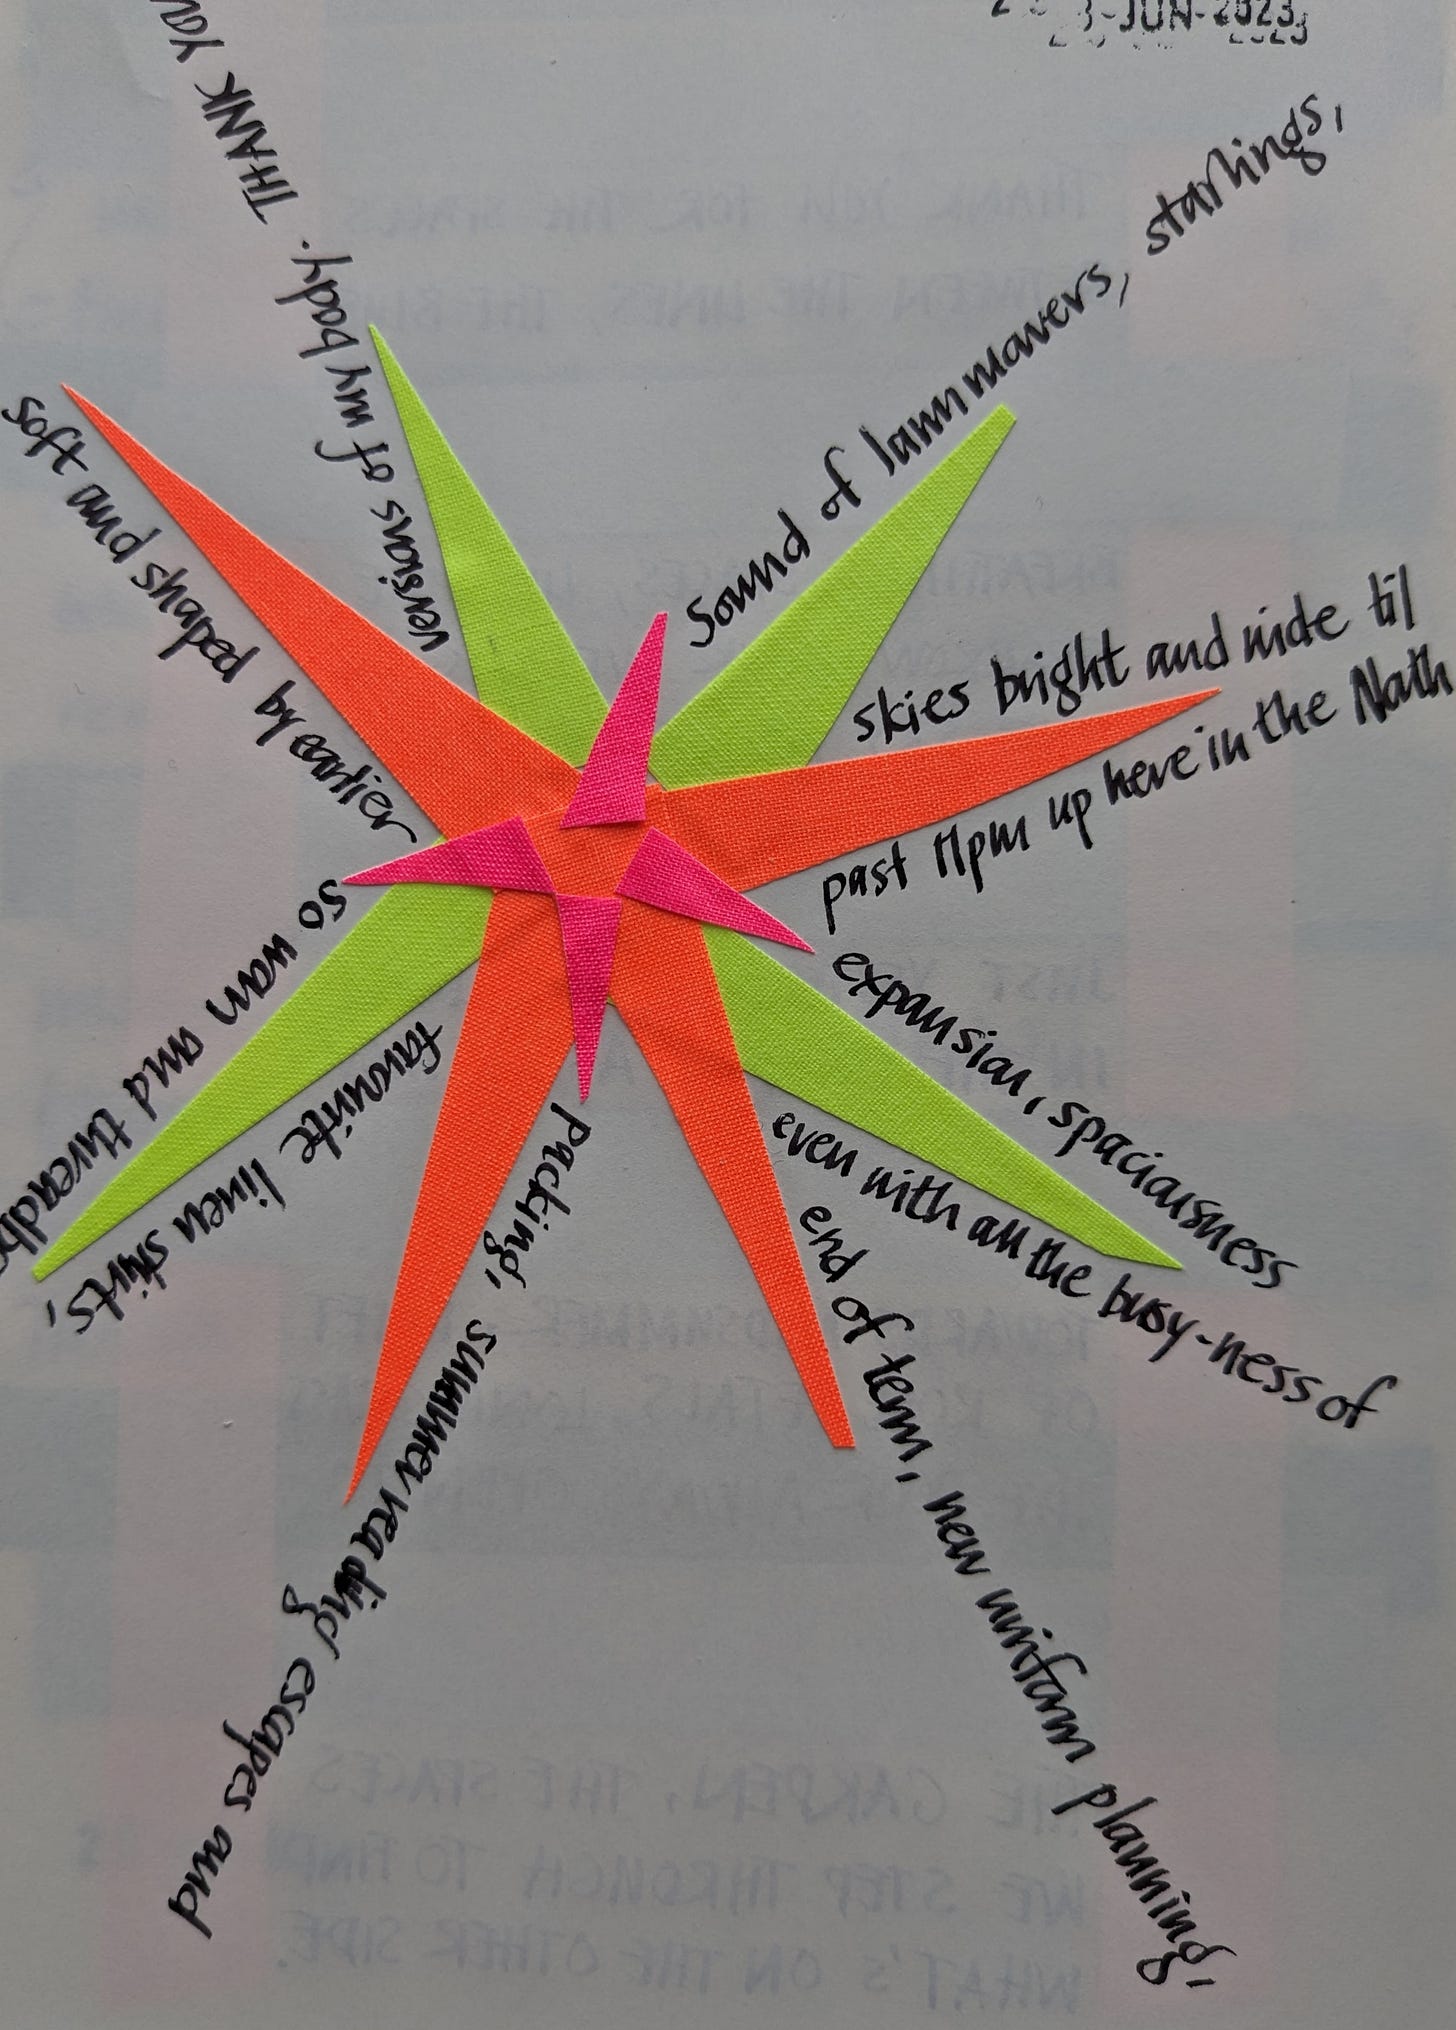 3-JUN-2023
Sound of lawnmowers, starlings,
skies bright and wide til
past 11pm up here in the North
expansion, spaciousness
even with all the busy-ness of
end of term, new uniform planning,
packing, summer reading escapes and
favourite linen shirts,
so worn and
soft and shaped by earlier
versions of my body.
THANK
THANK YOU FOR THE
THE LINES, THE
THE GARDEN, THE SPACES
WE STEP THROUGH TO FIND
WHAT'S ON THE OTHER SIDE.